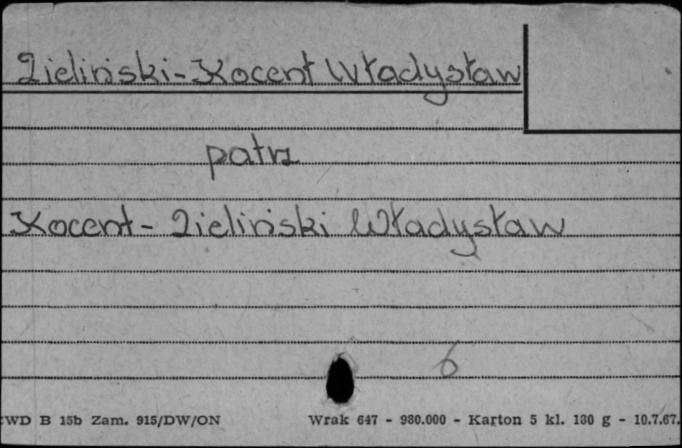 Zieliński-Kocent Władysław
patrz
Kocent-Zieliński Władysław
6
WD B 15b Zam. 915/DW/ON Wrak 647 - 980.000 - Karton 5 kl. 130 g - 10.7.67.